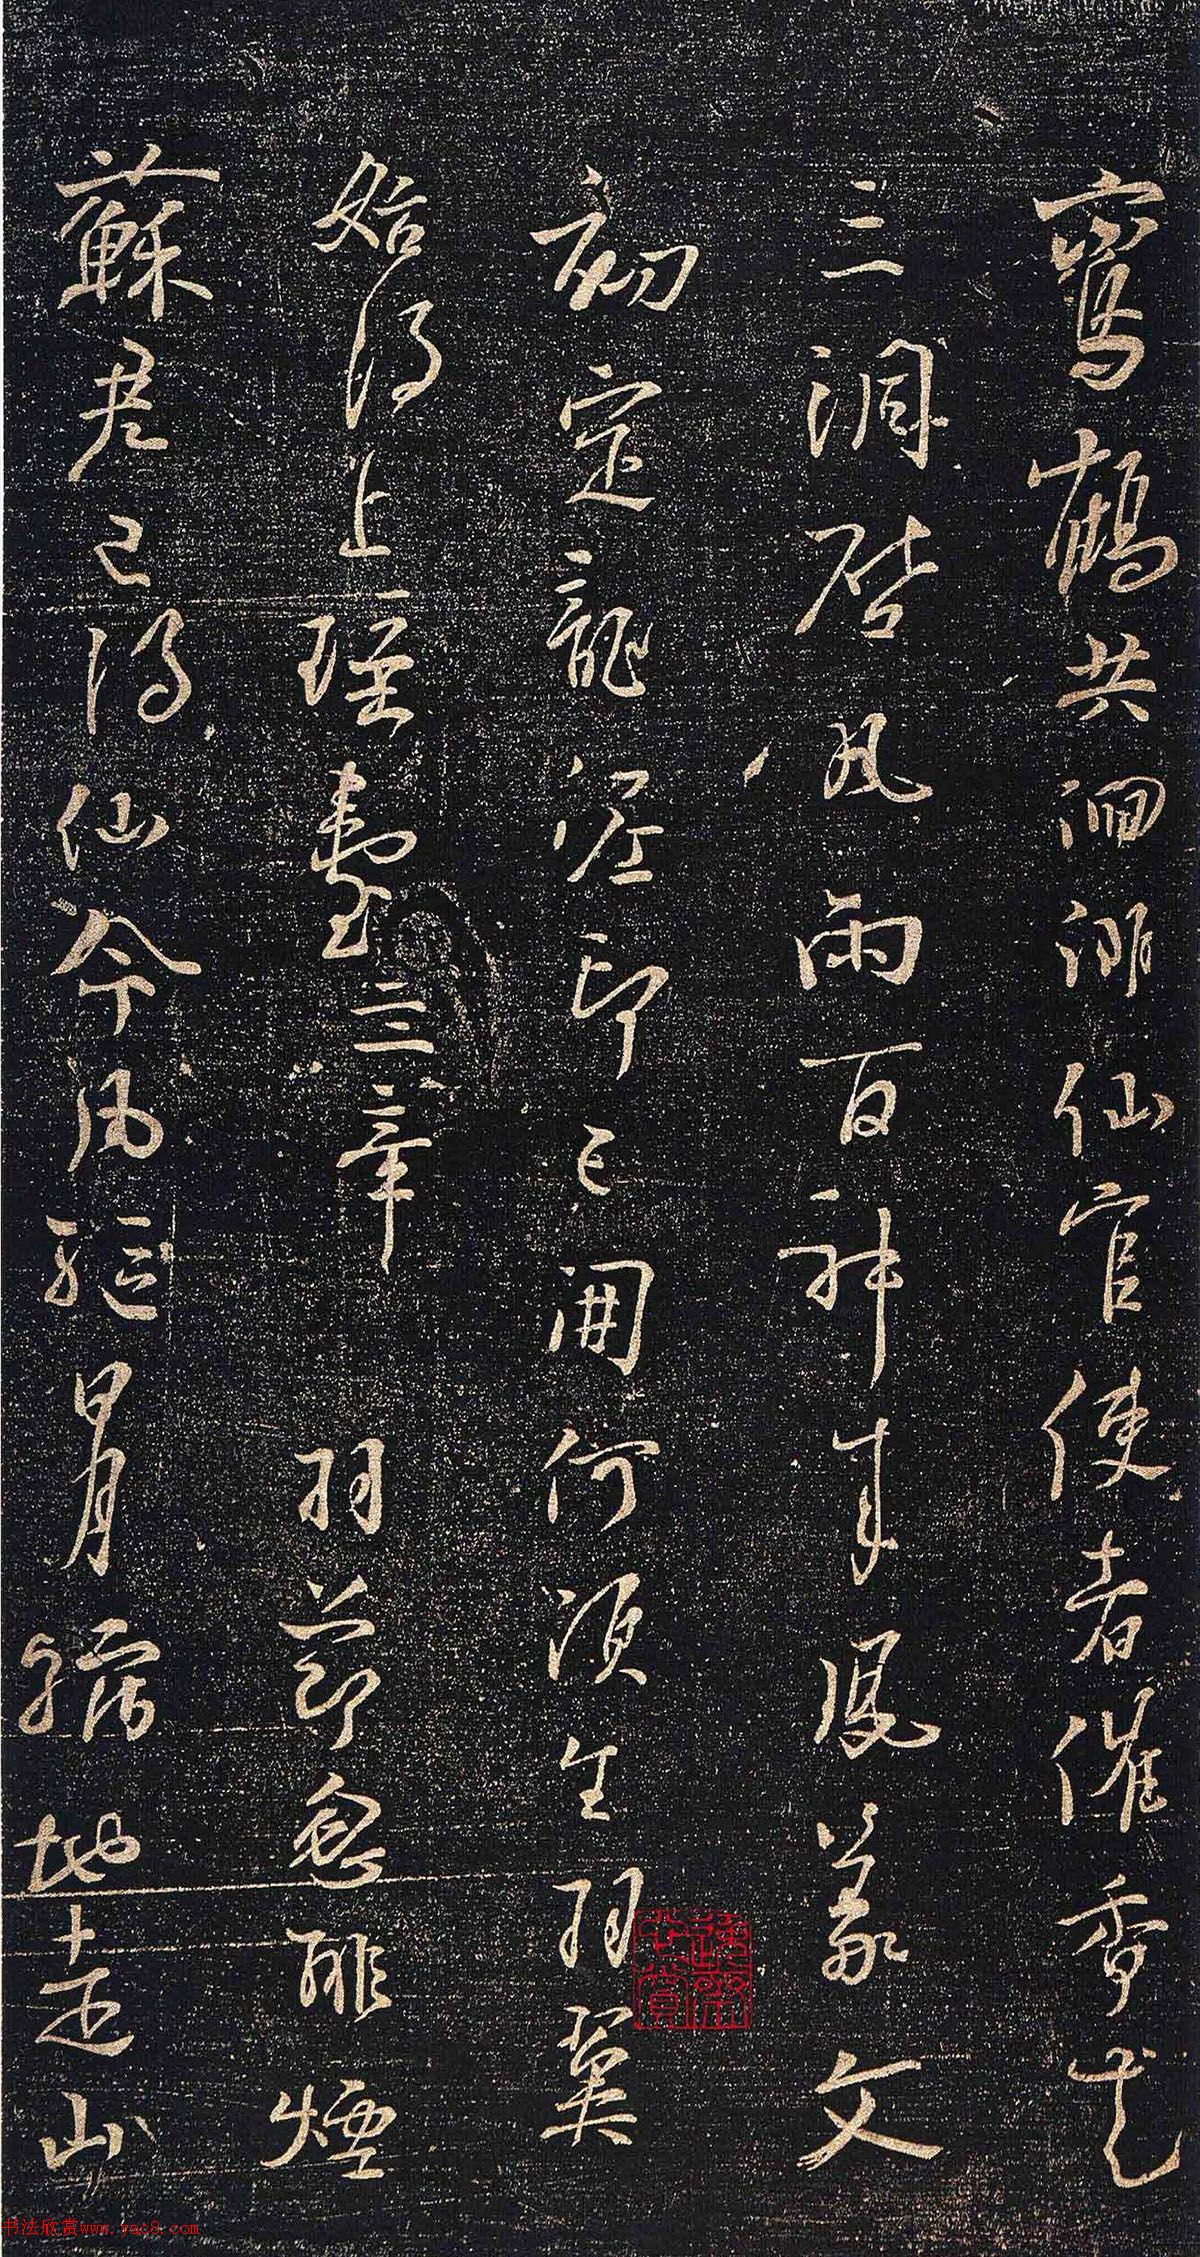 鸞鶴共徊徘仙官使者催香花
三洞啓風雨百神來鳳篆文
初定龍泥印已開何須生羽翼
始得上瑤臺三章 羽節忽排煙
蘇君已得仙命風驅日月縮地走山
书法欣赏www.yac8.com